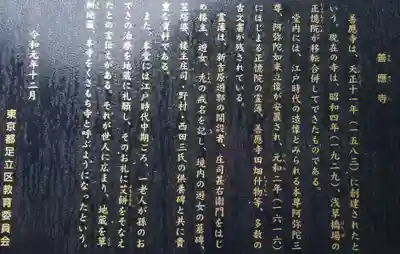 善應寺
善應寺は、天正十一年（一五八三）に創建されたと
いう。現在の寺は、昭和四年（一九二九）、浅草橋場の
正憶院が移転合併してできたものである。
堂内には、江戸時代の造像とみられる本尊阿弥陀三
尊、阿弥陀如来立像が安置され、元和二年（一六一六）
にはじまる正憶院の霊簿、善應寺田畑什物等、多数の
古文書が残されている。
霊簿は、新吉原遊郭の開設者、庄司甚右衛門をはじ
め楼主、遊女、禿の戒名を記し、境内の遊女の墓碑、
笠塔婆、楼主庄司・野村・西田三氏の供養碑と共に貴
重な資料である。
また、本堂には江戸時代中期ころ、一老人が孫のお
できの治療を地蔵に祈願し、そのお礼に艾餅をそなえ
たとの言伝えがある。それが世人に広まり、地蔵を草
餅地蔵、本寺をくさもち寺と呼ぶようになったという。
令和元年十二月
東京都足立区教育委員会